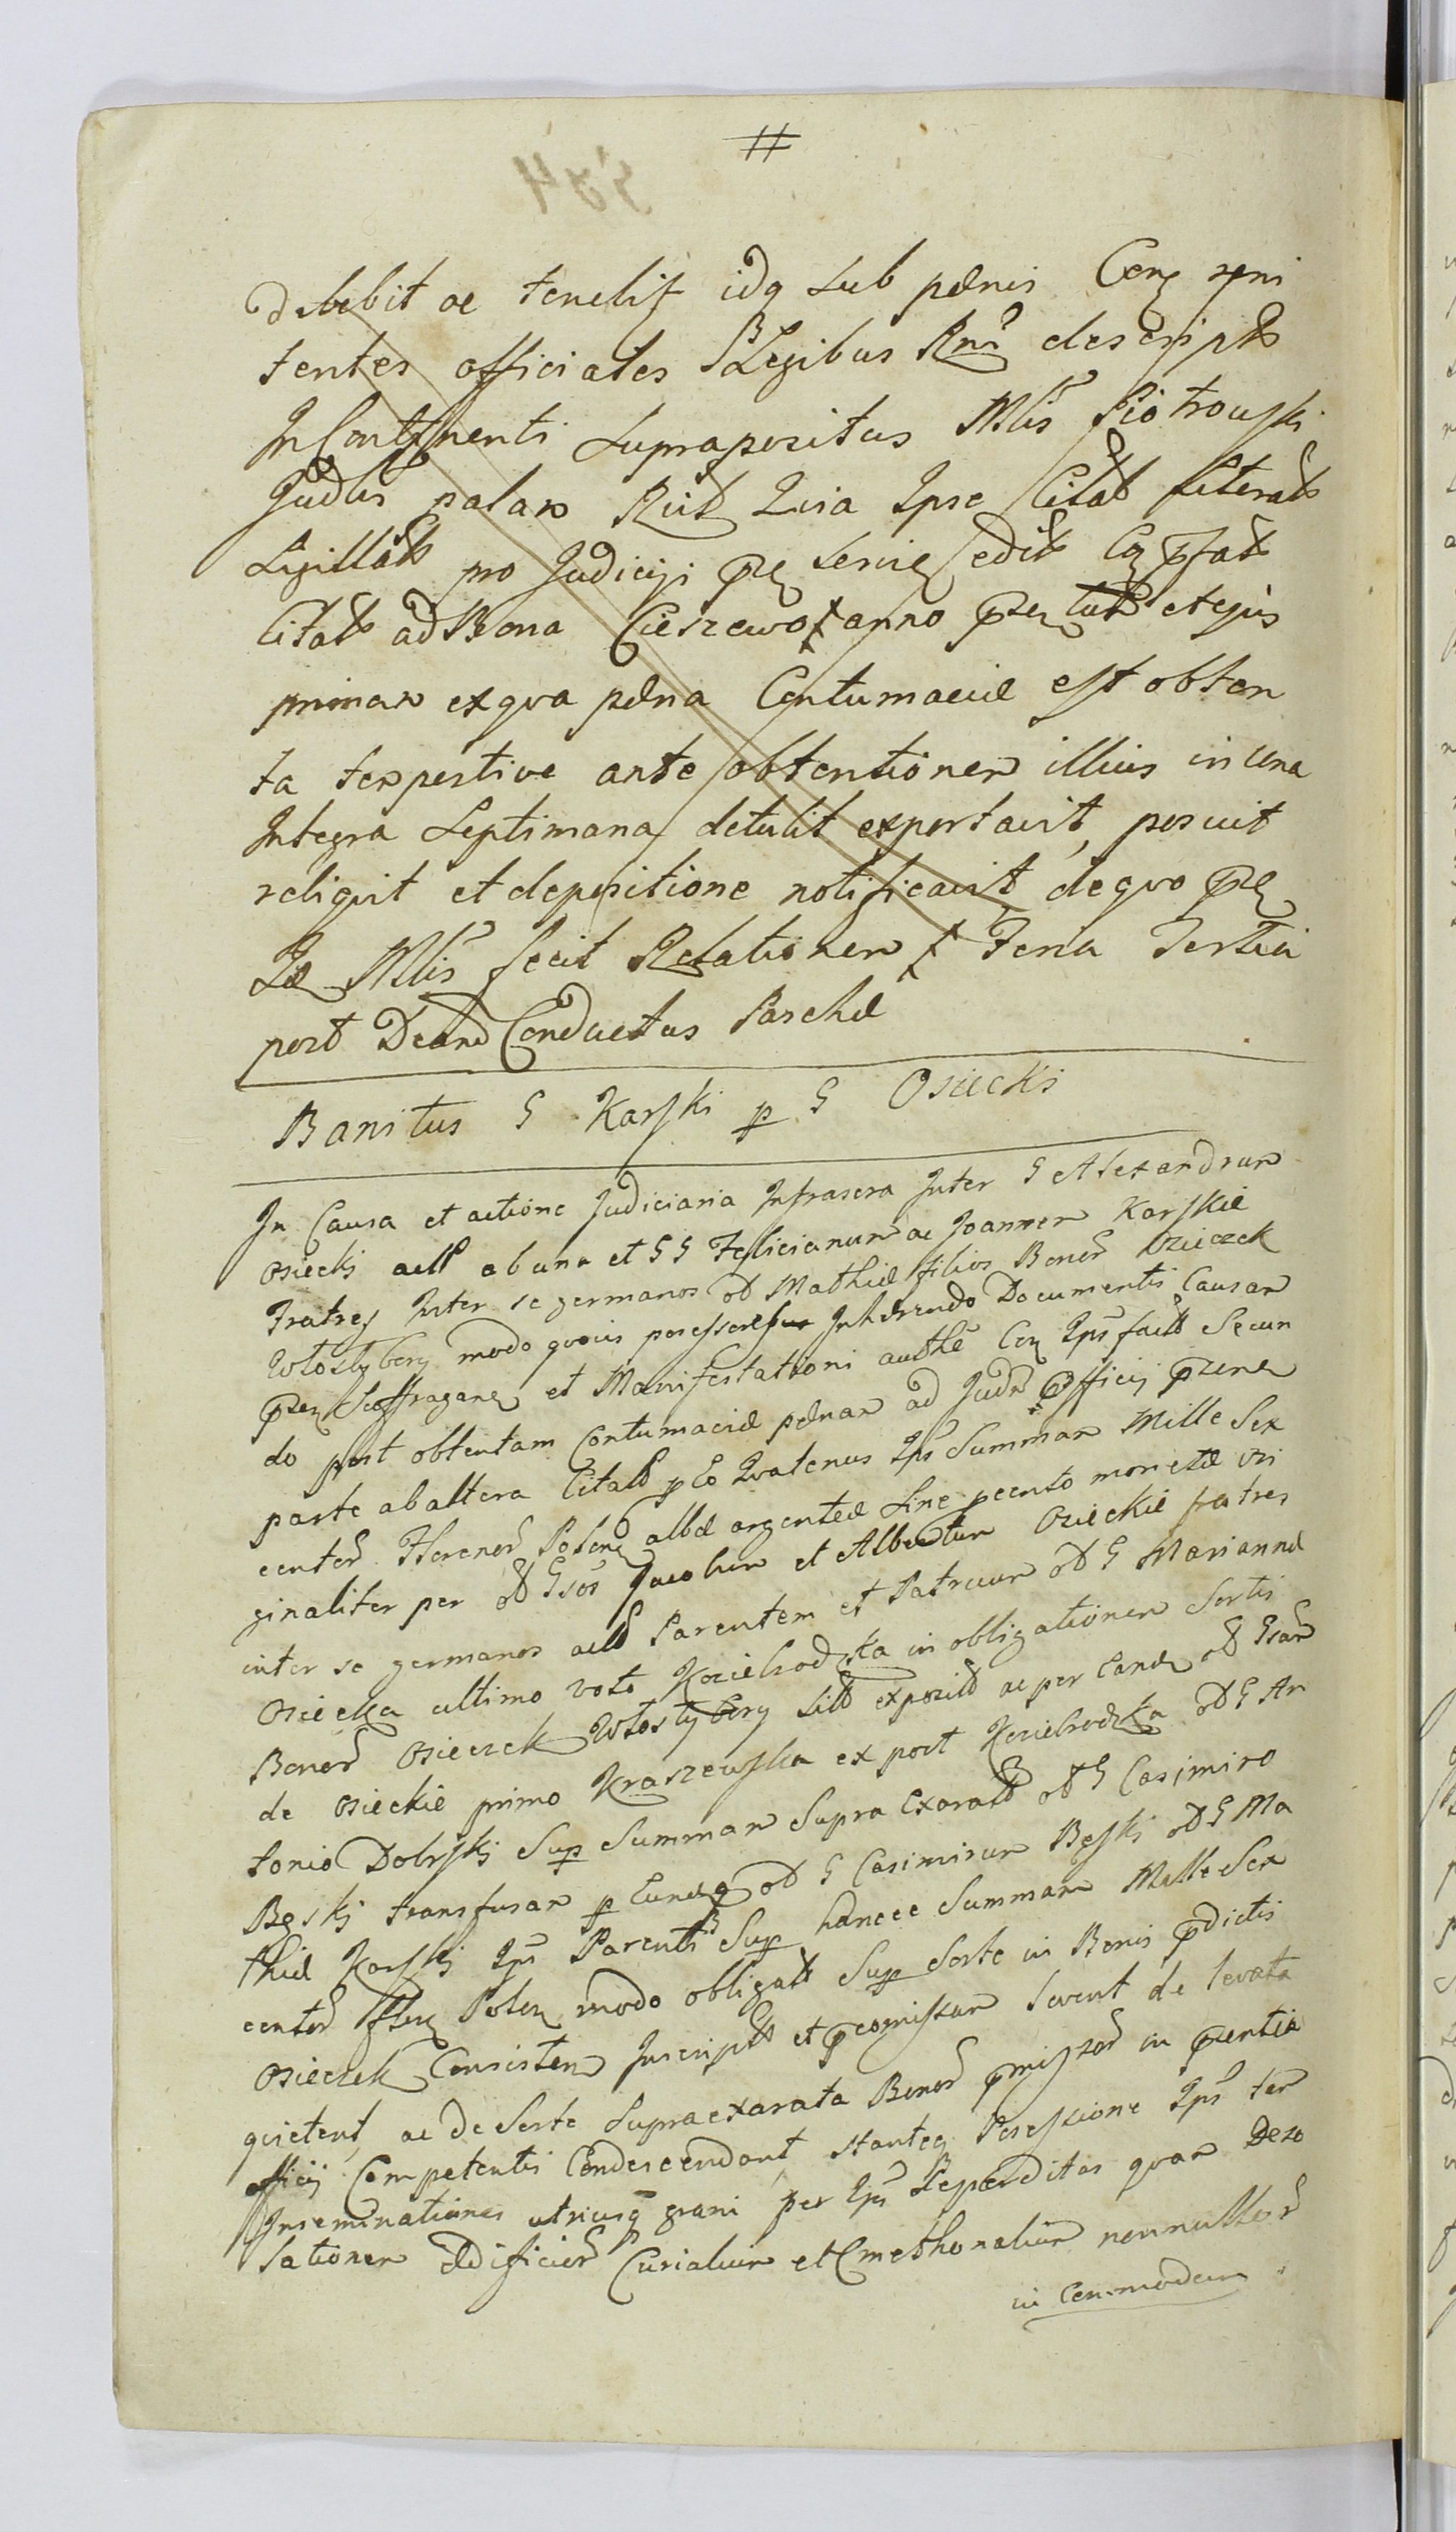 #
debebit ac tenebit idq sub pænis Con reni
tentes officiales Legibus Rni descriptis
In Continenti supraposítus Mlis Piotrowski
Judlis palam Rñt Quia Ipse Citatt Literatt
sigillatt pro Judicijs
Citatt ad Bona Cieszewo anno et ejus
primam ex qua pæna Contumaciæ est obten
ta tempestive ante obtentionem illius in una
Integra septimana detulit exportavit, posuit
reliquit et depositione notificavit de quo
Mlis fecit Relationem Feria Tertia
post Dcam Conductus Paschæ
Banitus G Karski p G Osiecki
In Causa et actione Judiciaria Infrascra Inter G Alexandrum
Osiecki ab una et GG Felicianum ac Joannem Karskie
Fratres Inter se germanos od Mathiæ filios Bonor Osieczek
Włostybory modo quovis possessores Inhærendo Documentis Causam
Suffragan et Manifestationi authe Con Ips factt Secun
do post obtentam Contumaciæ pænam ad Judm Officij
parte ab altera Citatt p Eo Quatenus Ips Summam Mille Sex
centor Florenor Polon albæ argenteæ sine pcento monetæ ori
ginaliter per od Gsos Jacobum et Albertum Osieckie fratres
inter se germanos Parentem et Patruum od G Mariannæ
Osiecka ultimo voto Koziebrodzka in obligationem Sortis
Bonor Osieczek Włostybory expositt ac per Eand od Gsam
de Osieckie primo Kraszewska ex post Koziebrodzka od G An
tonio Dobrski Sup Summam supra Exaratt od G Casimiro
Bęski transfusam p Eundq od G Casimirum Bęski od G Ma
thiæ Karski Ips Parenti Sup hancce Summam Mille Sex
centor Flen Polon modo obligatt Sup Sorte in Bonis pdictis
Osieczek Consisten Inscriptt et Levent de levata
quietent, ac de Sorte supra exarata Bonor in
officij Competentis Condescendant, stanteq Possessione Ips
Inseminationes utriusq grani per Ips Deperditas quam Deso
lationem Ædificior Curialium et Cmethonalium nonnullor
in Commodum